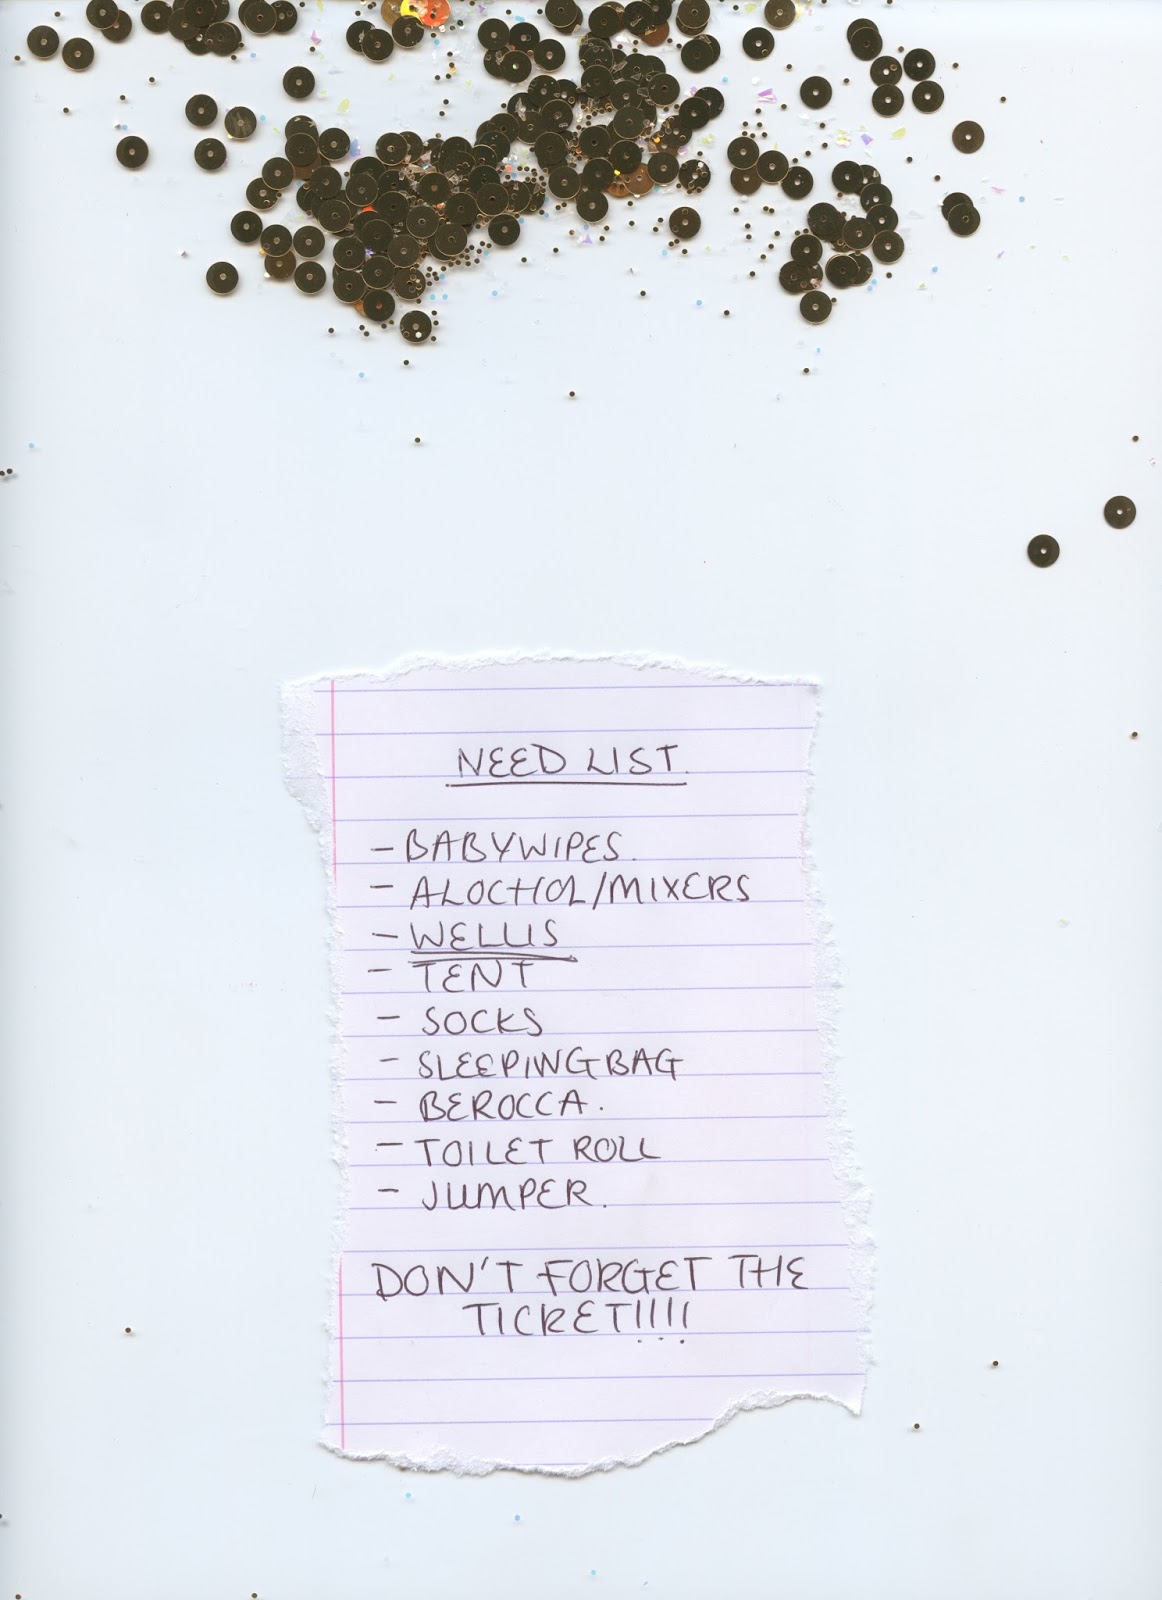 NEED LIST.
- BABYWIPES.
- ALOCHOL/MIXERS
- WELLIS
- TENT
- SOCKS
- SLEEPINGBAG
- BEROCCA.
- TOILET ROLL
- JUMPER.
DON'T FORGET THE
TICKET!!!!